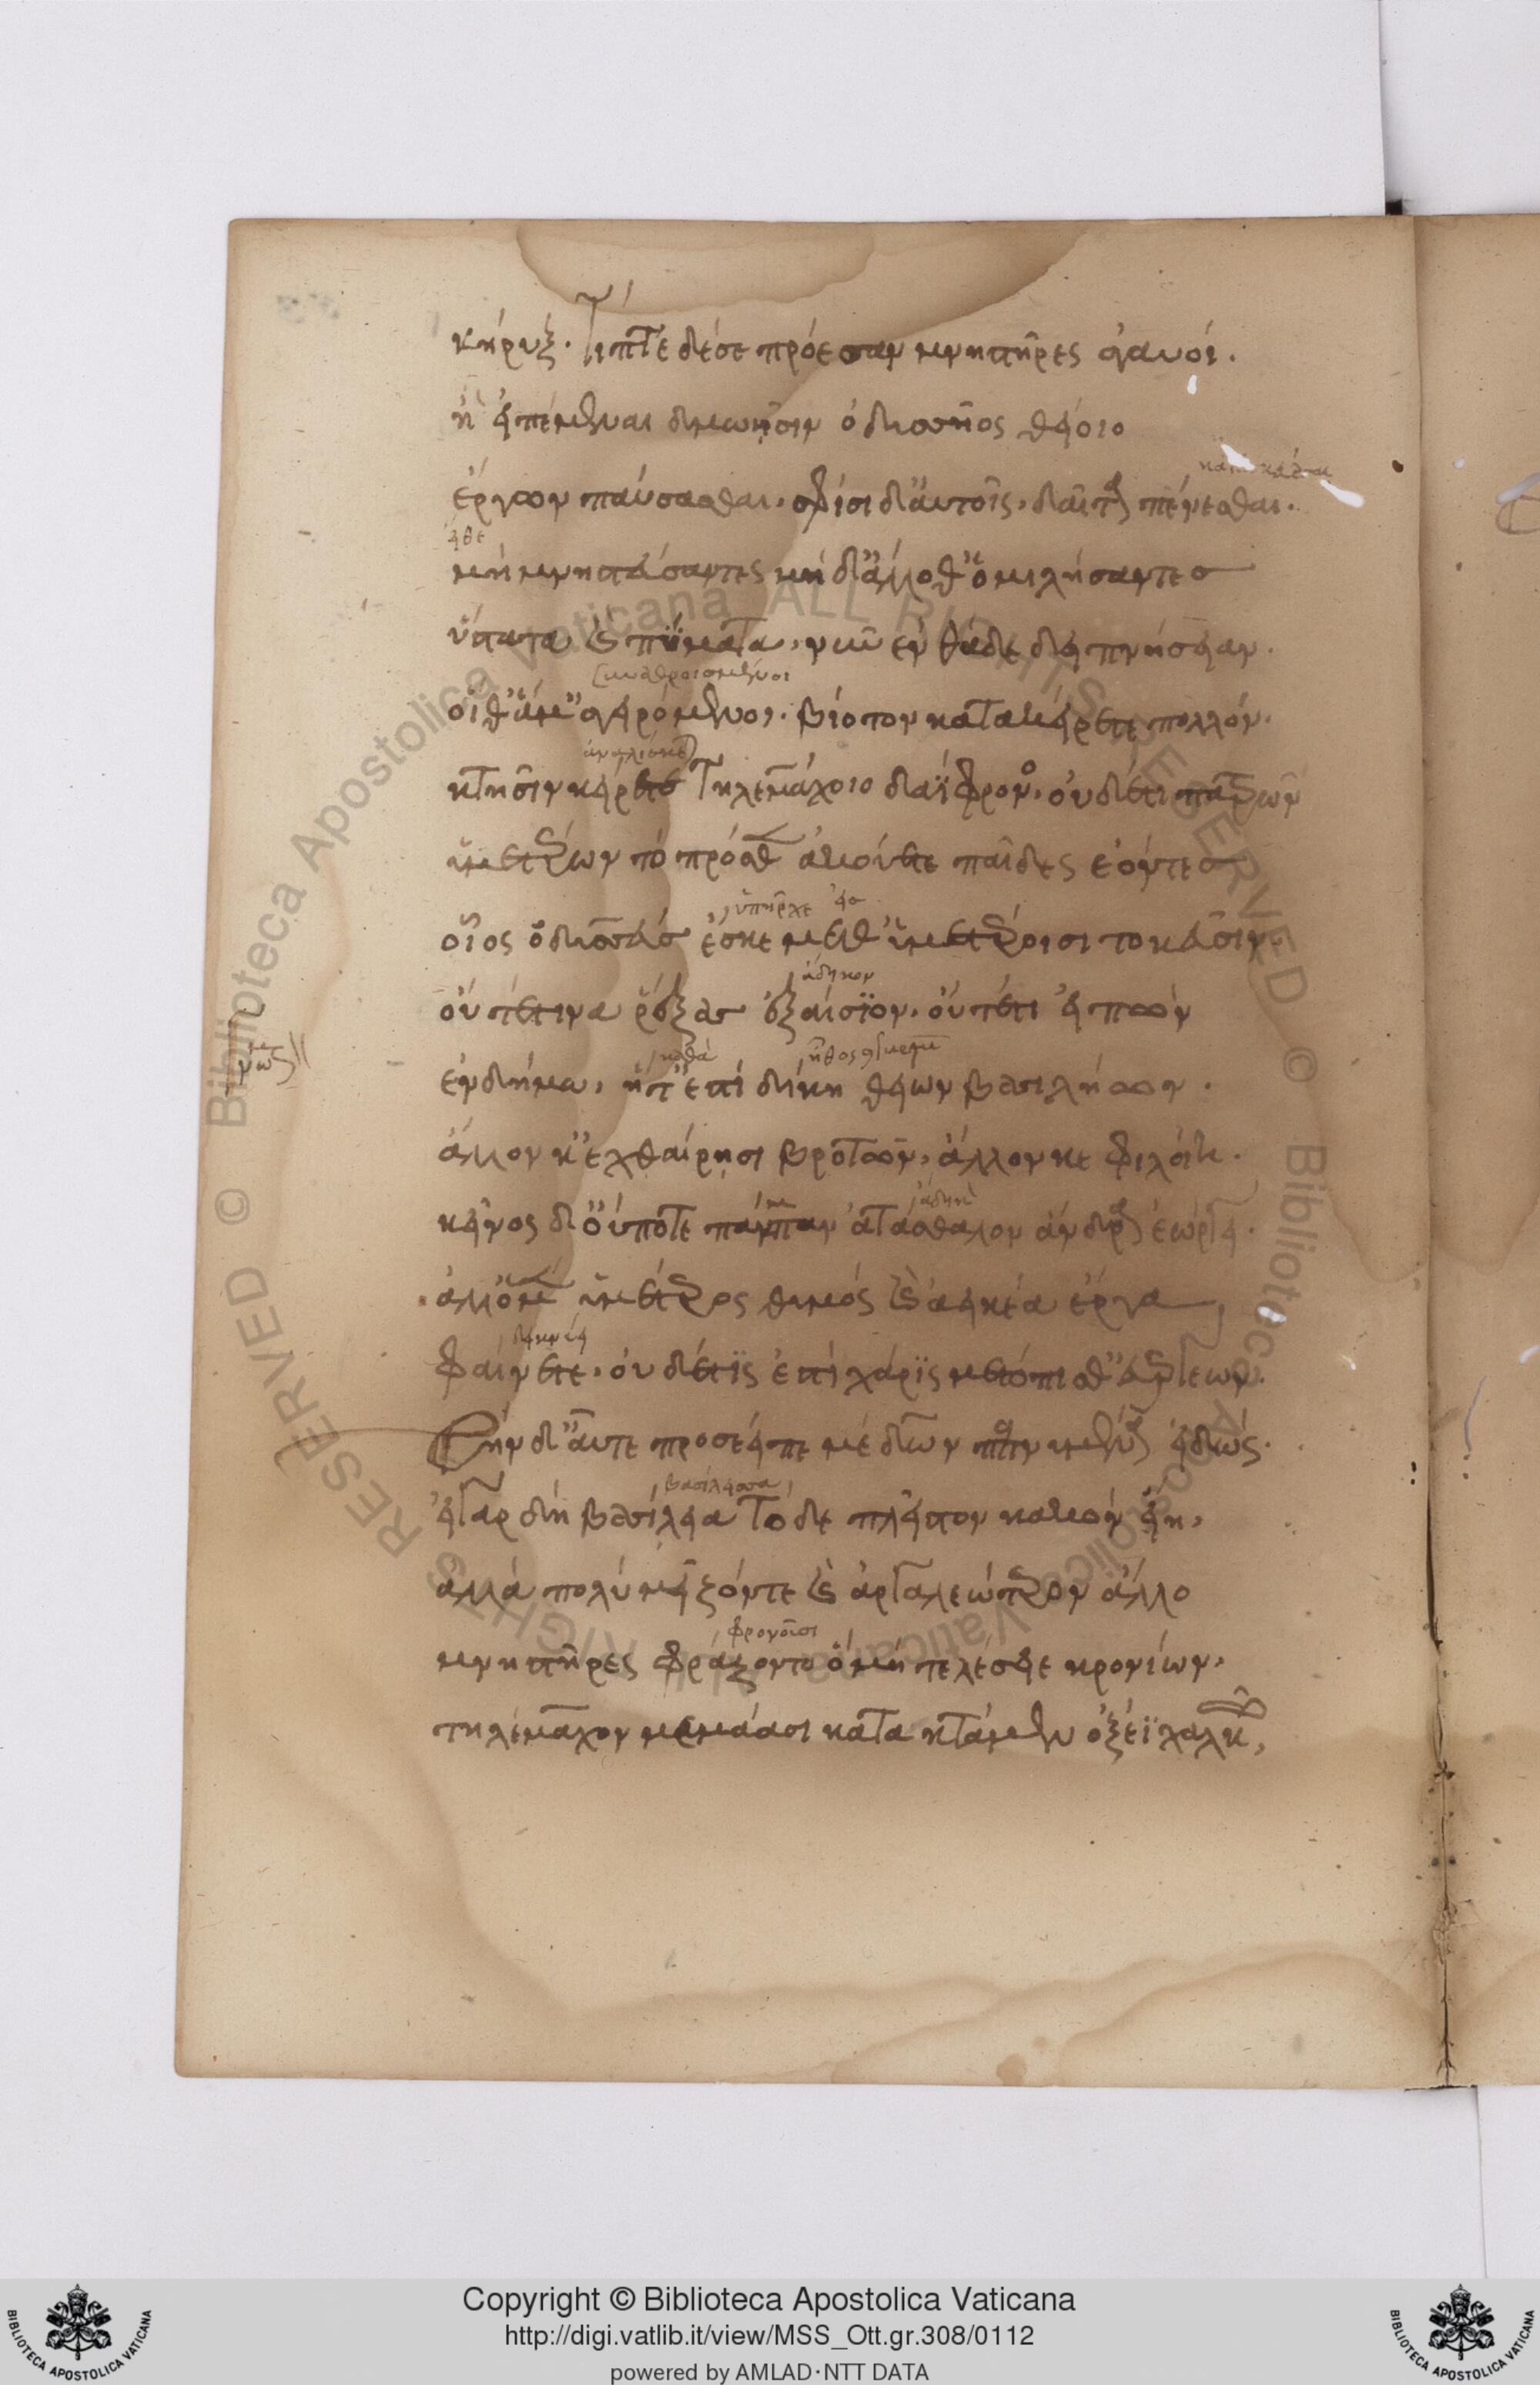 κήρυξ. Τίπτε δέ σε πρόεσαν μνηστῆρες ἀγαυοί.
ἢ εἰπέμεναι δμωῇσιν ὀδυσσῆος θείοιο
ἔργων παύσασθαι, σφίσι δ' αὐτοῖς, δαῖτα πένεσθαι.
εἴθε
μὴ μνηστεύσαντες μὴ δ' ἄλλοθ' ὁμιλήσαντες
ὕστατα καὶ πύματα, νῦν ἐνθάδε δειπνήσειαν.
συναθροιζόμενοι
οἳ θ' ἅμ' ἀγειρόμενοι. βίοτον κατακείρετε πολλόν.
κτῆσιν Τηλεμάχοιο δαΐφρονος, οὐδέ τι πατρῶν
ὑμετέρων τὸ πρόσθεν ἀκούετε παῖδες ἐόντες
ὑπῆρχε
οἷος ὀδυσσεὺς ἔσκε μεθ' ὑμετέροισι τοκεῦσιν.
ἄδικον
οὔτέ τινα ῥέξας ἐξαίσιον, οὔτέ τι εἰπὼν
ἐν δήμῳ, ἥ τ' ἐστὶ δίκη θείων βασιλήων.
ἄλλον κ' ἐχθαίρῃσι βροτῶν, ἄλλον κε φιλοίη.
κεῖνος δ' οὔποτε πάμπαν ἀτάσθαλον ἄνδρα ἐώργει.
ἀλλ' ὁ μὲν ὑμέτερος θυμός καὶ ἀεικέα ἔργα
φαίνεται, οὐδέ τις ἐστὶ χάρις μετόπισθ' εὐεργέων.
Τὴν δ' αὖτε προσέειπε μέδων πεπνυμένα εἰδώς.
βασίλισσα
εἰ γὰρ δὴ βασίλεια τόδε πλεῖστον κακὸν εἴη,
ἀλλὰ πολὺ μεῖζόν τε καὶ ἀργαλεώτερον ἄλλο
φρονοῦσι
μνηστῆρες φράζονται ὃ μὴ τελέσειε κρονίων,
τηλέμαχον μεμάασι κατακτάμεν ὀξέϊ χαλκῷ,
Copyright © Biblioteca Apostolica Vaticana
http://digi.vatlib.it/view/MSS_Ott.gr.308/0112
powered by AMLAD·NTT DATA